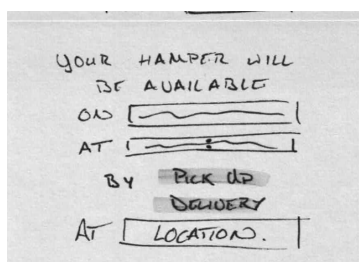 YOUR HAMPER WILL
BE AVAILABLE
ON
AT :
BY PICK UP
DELIVERY
AT LOCATION.